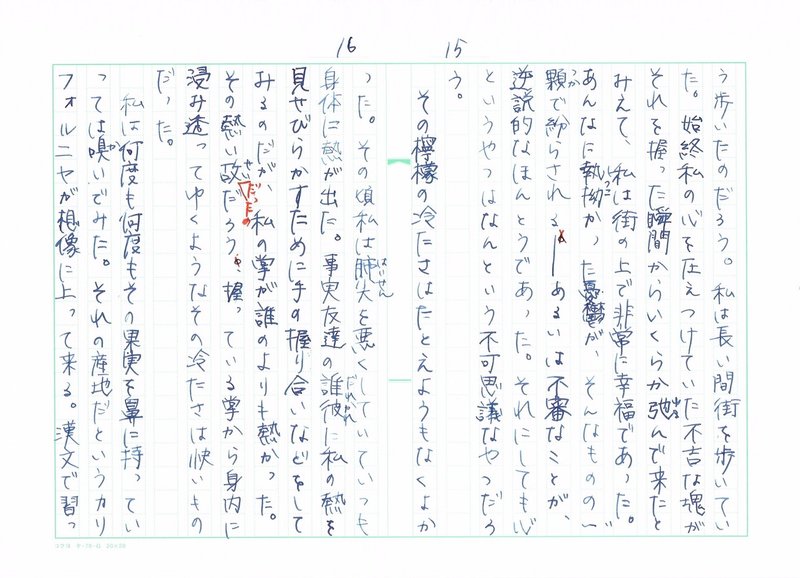 15
う歩いたのだろう。私は長い間街を歩いてい
た。始終私の心を圧えつけていた不吉な塊が
それを握った瞬間からいくらか弛んで来たと
ゆる
みえて、私は街の上で非常に幸福であった。
あんなに執拗かった憂鬱が、そんなものの一
しつこ
顆で紛らされる―あるいは不審なことが、
逆説的なほんとうであった。それにしても心
というやつはなんという不可思議なやつだろ
う。
その檸檬の冷たさはたとえようもなくよか
16
った。その頃私は肺尖を悪くしていていつも
はいせん
身体に熱が出た。事実友達の誰彼に私の熱を
だれかれ
見せびらかすために手の握り合いなどをして
みるのだが、私の掌が誰のよりも熱かった。
その熱い故だろう、握っている掌から身内に
せい
だったの
浸み透ってゆくようなその冷たさは快いもの
だった。
私は何度も何度もその果実を鼻に持ってい
っては嗅いでみた。それの産地だというカリ
か
フォルニヤが想像に上って来る。漢文で習っ